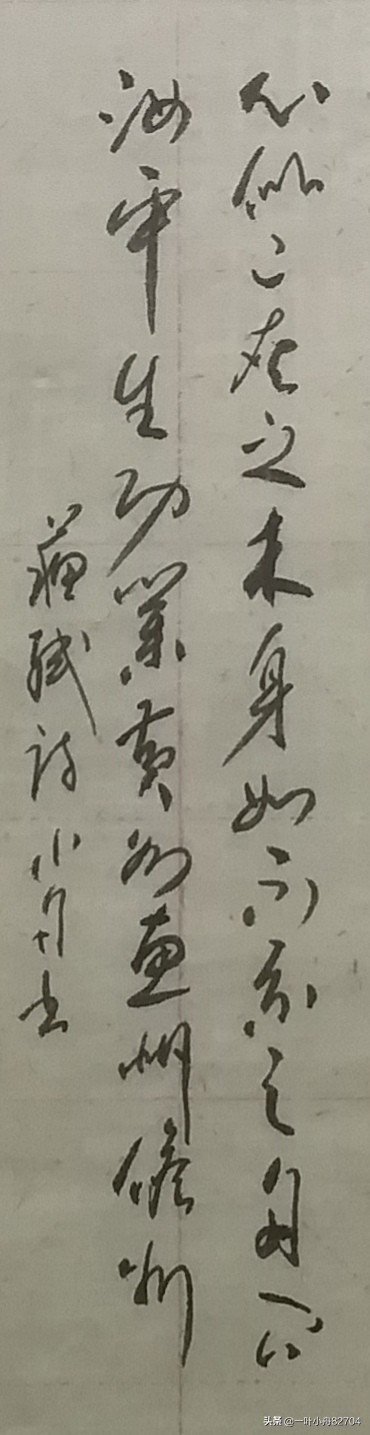 心似已灰之木身如不系之舟问
汝平生功業黄州惠州儋州
蘇軾诗小舟书
头条 @一叶小舟82704